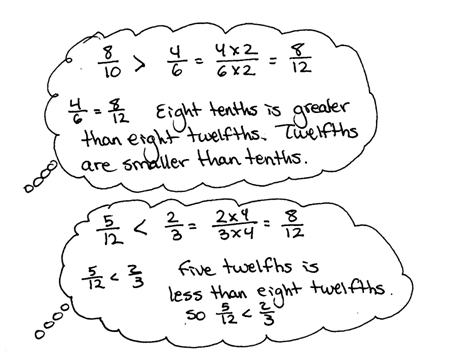 8/10 > 4/6 = 4×2/6×2 = 8/12
4/6 = 8/12 Eight tenths is greater
than eight twelfths. Twelfths
are smaller than tenths.
5/12 < 2/3 = 2×4/3×4 = 8/12
5/12 < 2/3 Five twelfhs is
less than eight twelfths.
so 5/12 < 2/3